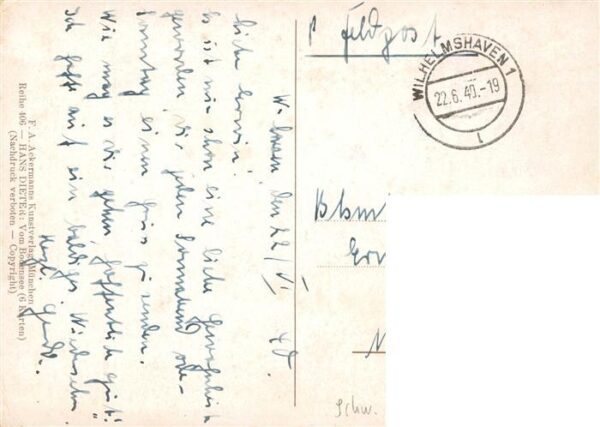 W. haven, den 22/VI 40.
Liebe Erwin!
Es ist mir schon eine liebe Gewohnheit
geworden, dir jeden Sonnabend oder
Sonntag einen Gruß zu senden.
Wie mag es dir gehen, hoffentlich gut!
Ich hoffe auf ein baldiges Wiedersehn.
Herzl.
F. A. Ackermanns Kunstverlag, München
Reihe 406 — HANS DIETER: Vom Bodensee (6 Karten)
(Nachdruck verboten — Copyright)
Feldpost
WILHELMSHAVEN 1
22.6.40.-19
Schw.